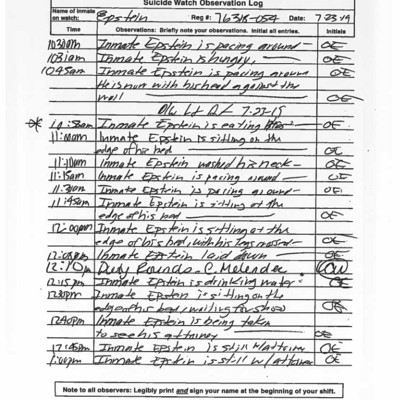 Suicide Watch Observation Log
Name of Inmate on watch: Epstein Reg #: 76318-054 Date: 7-23-19
Time Observations: Briefly note your observations. Initial all entries. Initials
10:30am Inmate Epstein is pacing around OE
10:31am Inmate Epstein is hungry, OE
10:45am Inmate Epstein is pacing around OE
He is now with his head against the
wall OE
7-23-19
10:58am Inmate Epstein is eating OE
11:00am Inmate Epstein is sitting on the
edge of his bed OE
11:10am Inmate Epstein washed his neck OE
11:15am Inmate Epstein is pacing around OE
11:30am Inmate Epstein is pacing around OE
11:45am Inmate Epstein is sitting at the
edge of his bed OE
12:00pm Inmate Epstein is sitting at the
edge of his bed, with his legs crossed OE
12:05pm Inmate Epstein laid down OE
12:10pm Duty Rounds - C. Melendez
12:15pm Inmate Epstein is drinking water OE
12:30pm Inmate Epstein is sitting on the
edge of his bed, waiting for OE
12:40pm Inmate Epstein is being taken
to see his attorney OE
12:45pm Inmate Epstein is still w/attorney OE
1:00pm Inmate Epstein is still w/attorney OE
Note to all observers: Legibly print and sign your name at the beginning of your shift.